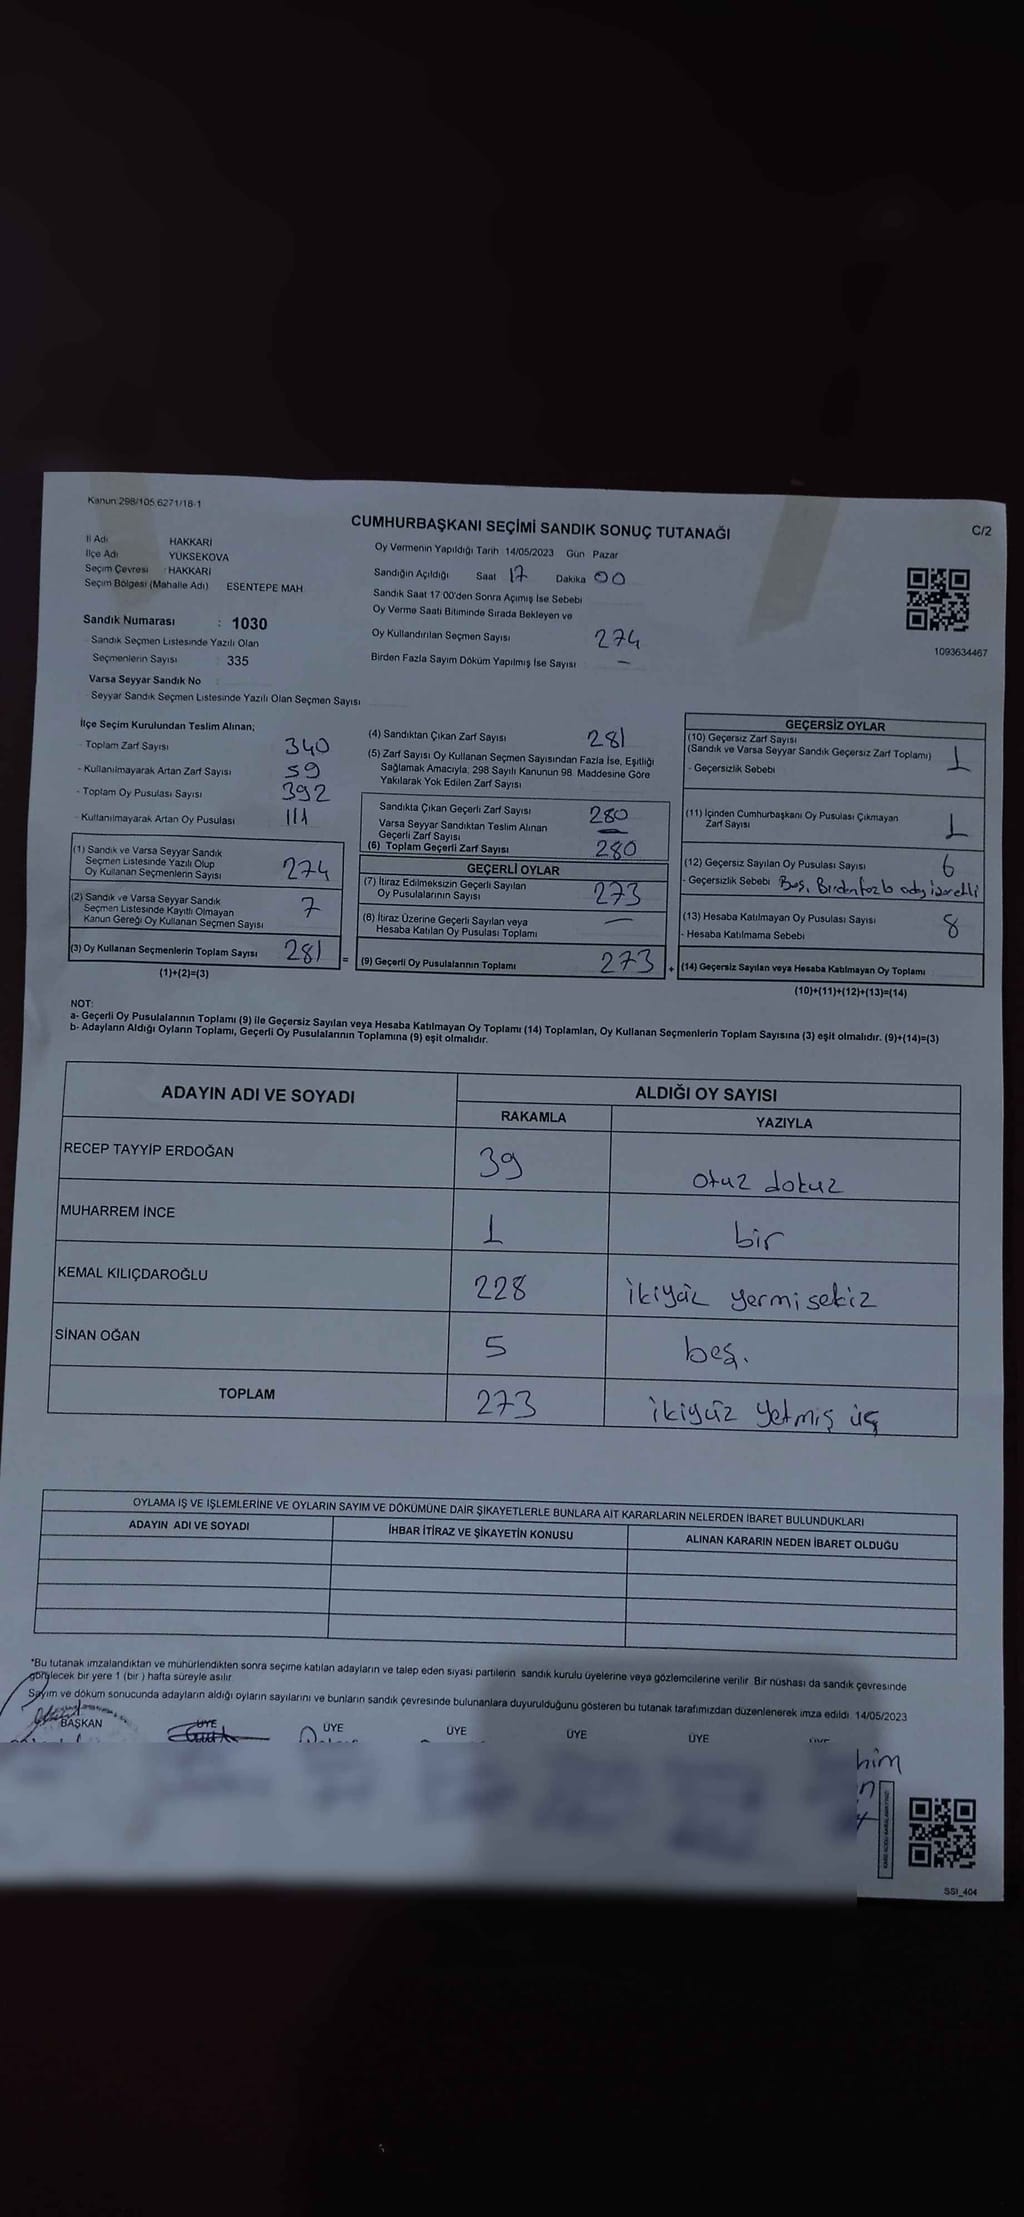 Kanun:298/105,6271/16-1
CUMHURBAŞKANI SEÇİMİ SANDIK SONUÇ TUTANAĞI
C/2
İl Adı HAKKARİ
İlçe Adı YÜKSEKOVA
Seçim Çevresi : HAKKARİ
Seçim Bölgesi (Mahalle Adı) ESENTEPE MAH
Sandık Numarası : 1030
Sandık Seçmen Listesinde Yazılı Olan
Seçmenlerin Sayısı 335
Varsa Seyyar Sandık No
Seyyar Sandık Seçmen Listesinde Yazılı Olan Seçmen Sayısı
Oy Vermenin Yapıldığı Tarih 14/05/2023 Gün Pazar
Sandığın Açıldığı Saat 17 Dakika 00
Sandık Saat 17 00'den Sonra Açımış İse Sebebi
Oy Verme Saati Bitiminde Sırada Bekleyen ve
Oy Kullandırılan Seçmen Sayısı 274
Birden Fazla Sayım Döküm Yapılmış İse Sayısı —
1093634467
İlçe Seçim Kurulundan Teslim Alınan;
- Toplam Zarf Sayısı 340
- Kullanılmayarak Artan Zarf Sayısı 59
- Toplam Oy Pusulası Sayısı 392
- Kullanılmayarak Artan Oy Pusulası 111
(1) Sandık ve Varsa Seyyar Sandık
Seçmen Listesinde Yazılı Olup
Oy Kullanan Seçmenlerin Sayısı 274
(2) Sandık ve Varsa Seyyar Sandık
Seçmen Listesinde Kayıtlı Olmayan
Kanun Gereği Oy Kullanan Seçmen Sayısı 7
(3) Oy Kullanan Seçmenlerin Toplam Sayısı 281 =
(1)+(2)=(3)
(4) Sandıktan Çıkan Zarf Sayısı 281
(5) Zarf Sayısı Oy Kullanan Seçmen Sayısından Fazla İse, Eşitliği
Sağlamak Amacıyla, 298 Sayılı Kanunun 98. Maddesine Göre
Yakılarak Yok Edilen Zarf Sayısı
Sandıkta Çıkan Geçerli Zarf Sayısı 280
Varsa Seyyar Sandıktan Teslim Alınan
Geçerli Zarf Sayısı —
(6) Toplam Geçerli Zarf Sayısı 280
GEÇERLİ OYLAR
(7) İtiraz Edilmeksizin Geçerli Sayılan
Oy Pusulalarının Sayısı 273
(8) İtiraz Üzerine Geçerli Sayılan veya
Hesaba Katılan Oy Pusulası Toplamı —
(9) Geçerli Oy Pusulalarının Toplamı 273 +
GEÇERSİZ OYLAR
(10) Geçersiz Zarf Sayısı
(Sandık ve Varsa Seyyar Sandık Geçersiz Zarf Toplamı) 1
- Geçersizlik Sebebi
(11) İçinden Cumhurbaşkanı Oy Pusulası Çıkmayan
Zarf Sayısı 1
(12) Geçersiz Sayılan Oy Pusulası Sayısı 6
- Geçersizlik Sebebi Boş, Birden fazla aday işaretli
(13) Hesaba Katılmayan Oy Pusulası Sayısı 8
- Hesaba Katılmama Sebebi
(14) Geçersiz Sayılan veya Hesaba Katılmayan Oy Toplamı
(10)+(11)+(12)+(13)=(14)
NOT:
a- Geçerli Oy Pusulalarının Toplamı (9) ile Geçersiz Sayılan veya Hesaba Katılmayan Oy Toplamı (14) Toplamları, Oy Kullanan Seçmenlerin Toplam Sayısına (3) eşit olmalıdır. (9)+(14)=(3)
b- Adayların Aldığı Oyların Toplamı, Geçerli Oy Pusulalarının Toplamına (9) eşit olmalıdır.
ADAYIN ADI VE SOYADI ALDIĞI OY SAYISI
RAKAMLA YAZIYLA
RECEP TAYYİP ERDOĞAN 39 otuz dokuz
MUHARREM İNCE 1 bir
KEMAL KILIÇDAROĞLU 228 ikiyüz yermi sekiz
SİNAN OĞAN 5 beş.
TOPLAM 273 ikiyüz yetmiş üç
OYLAMA İŞ VE İŞLEMLERİNE VE OYLARIN SAYIM VE DÖKÜMÜNE DAİR ŞİKAYETLERLE BUNLARA AİT KARARLARIN NELERDEN İBARET BULUNDUKLARI
ADAYIN ADI VE SOYADI İHBAR İTİRAZ VE ŞİKAYETİN KONUSU ALINAN KARARIN NEDEN İBARET OLDUĞU
*Bu tutanak imzalandıktan ve mühürlendikten sonra seçime katılan adayların ve talep eden siyasi partilerin sandık kurulu üyelerine veya gözlemcilerine verilir. Bir nüshası da sandık çevresinde
görülecek bir yere 1 (bir ) hafta süreyle asılır.
Sayım ve döküm sonucunda adayların aldığı oyların sayılarını ve bunların sandık çevresinde bulunanlara duyurulduğunu gösteren bu tutanak tarafımızdan düzenlenerek imza edildi. 14/05/2023
BAŞKAN ÜYE ÜYE ÜYE ÜYE ÜYE
him
SSI_404